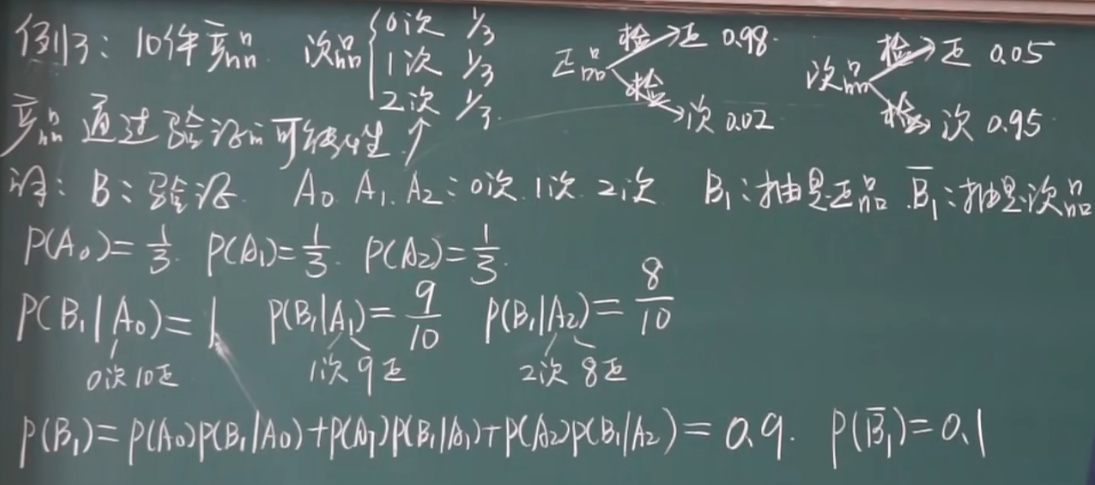 例3：10件产品 次品 { 0次 1/3
1次 1/3
2次 1/3
正品 检→正 0.98
检→次 0.02
次品 检→正 0.05
检→次 0.95
产品通过验收的可能性
设：B：验收 A₀ A₁ A₂：0次 1次 2次 B₁：抽是正品 B̄₁：抽是次品
P(A₀)=1/3 P(A₁)=1/3 P(A₂)=1/3
P(B₁|A₀)=1 P(B₁|A₁)=9/10 P(B₁|A₂)=8/10
0次10正 1次9正 2次8正
P(B₁)=P(A₀)P(B₁|A₀)+P(A₁)P(B₁|A₁)+P(A₂)P(B₁|A₂)=0.9. P(B̄₁)=0.1